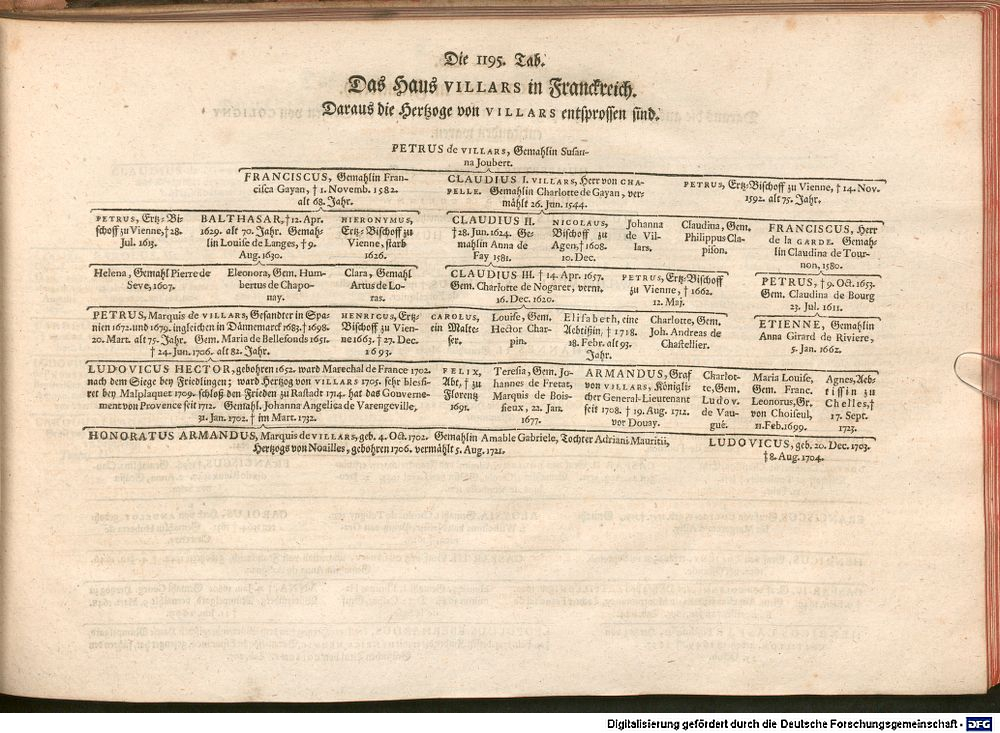 Die 1195. Tab.
Das Haus VILLARS in Franckreich.
Daraus die Hertzoge von VILLARS entsprossen sind.
PETRUS de VILLARS, Gemahlin Susan-
na Joubert.
FRANCISCUS, Gemahlin Fran-
cisca Gayan, † 1. Novemb. 1582.
alt 68. Jahr.
CLAUDIUS I. VILLARS, Herr von CHA-
PELLE. Gemahlin Charlotte de Gayan, ver-
mählt 26. Jun. 1544.
PETRUS, Ertz-Bischoff zu Vienne, † 14. Nov.
1592. alt 75. Jahr.
PETRUS, Ertz-Bi-
schoff zu Vienne, † 28.
Jul. 1613.
BALTHASAR, † 12. Apr.
1629. alt 70. Jahr. Gemah-
lin Louise de Langes, † 9.
Aug. 1630.
HIERONYMUS,
Ertz-Bischoff zu
Vienne, starb
1626.
CLAUDIUS II.
† 28. Jun. 1624. Ge-
mahlin Anna de
Fay 1581.
NICOLAUS,
Bischoff zu
Agen, † 1608.
10. Dec.
Johanna
de Vil-
lars.
Claudina, Gem.
Philippus Cla-
pison.
FRANCISCUS, Herr
de la GARDE. Gemah-
lin Claudina de Tour-
non, 1580.
Helena, Gemahl Pierre de
Seve, 1607.
Eleonora, Gem. Hum-
bertus de Chapo-
nay.
Clara, Gemahl
Artus de Lo-
ras.
CLAUDIUS III. † 14. Apr. 1657.
Gem. Charlotte de Nogaret, verm.
16. Dec. 1620.
PETRUS, Ertz-Bischoff
zu Vienne, † 1662.
12. Maj.
PETRUS, † 9. Oct. 1653.
Gem. Claudina de Bourg
23. Jul. 1611.
PETRUS, Marquis de VILLARS, Gesandter in Spa-
nien 1672. und 1679. ingleichen in Dännemarck 1683. † 1698.
20. Mart. alt 75. Jahr. Gem. Maria de Bellefonds 1651.
† 24. Jun. 1706. alt 82. Jahr.
HENRICUS, Ertz-
Bischoff zu Vien-
ne 1663. † 27. Dec.
1693.
CAROLUS,
ein Malte-
ser.
Louise, Gem.
Hector Char-
pin.
Elisabeth, eine
Aebtißin, † 1718.
18. Febr. alt 93.
Jahr.
Charlotte, Gem.
Joh. Andreas de
Chastellier.
ETIENNE, Gemahlin
Anna Girard de Riviere,
5. Jan. 1662.
LUDOVICUS HECTOR, gebohren 1652. ward Marechal de France 1702.
nach dem Siege bey Friedlingen; ward Hertzog von VILLARS 1705. sehr blessi-
ret bey Malplaquet 1709. schloß den Frieden zu Rastadt 1714. hat das Gouverne-
ment von Provence seit 1712. Gemahl. Johanna Angelica de Varengeville,
31. Jan. 1702. † im Mart. 1732.
FELIX,
Abt, † zu
Florentz
1691.
Teresia, Gem. Jo-
hannes de Fretat,
Marquis de Bois-
sieux, 22. Jan.
1677.
ARMANDUS, Graf
von VILLARS, Königli-
cher General-Lieutenant
seit 1708. † 19. Aug. 1712.
vor Douay.
Charlot-
te, Gem.
Ludov.
de Vau-
gué.
Maria Louise,
Gem. Franc.
Leonorus, Gr.
von Choiseul,
11. Feb. 1699.
Agnes, Aeb-
tissin zu
Chelles, †
17. Sept.
1723.
HONORATUS ARMANDUS, Marquis de VILLARS, geb. 4. Oct. 1702. Gemahlin Amable Gabriele, Tochter Adriani Mauritii,
Hertzogs von Noailles, gebohren 1706. vermählt 5. Aug. 1721.
LUDOVICUS, geb. 20. Dec. 1703.
† 8. Aug. 1704.
Digitalisierung gefördert durch die Deutsche Forschungsgemeinschaft - DFG